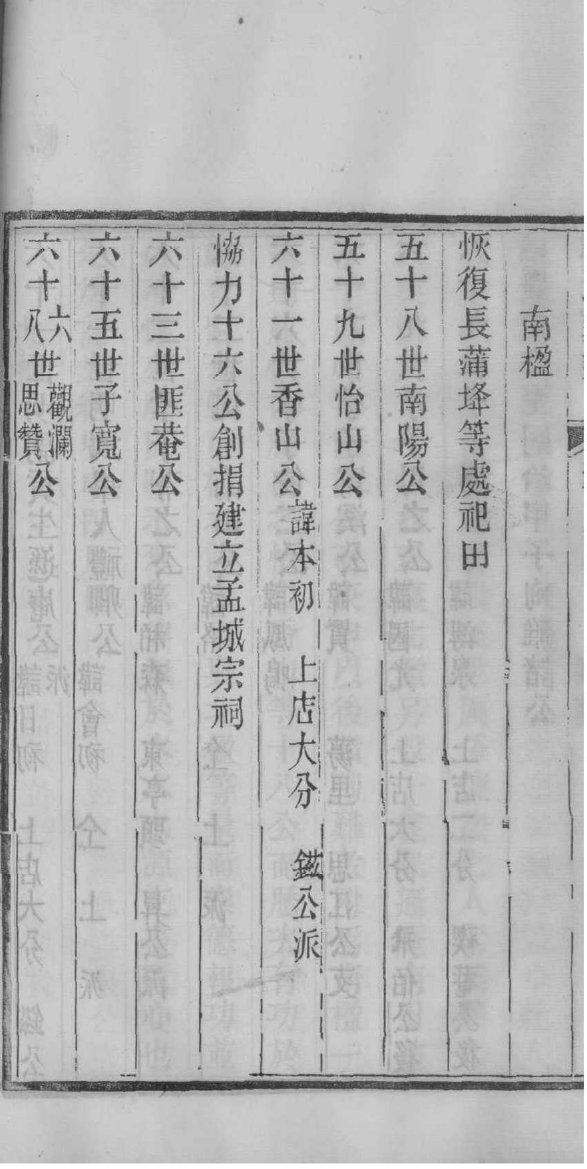 南楹
恢復長蒲垶等處祀田
五十八世南陽公
五十九世怡山公
六十一世香山公 諱本初 上店大分 鎡公派
協力十六公創捐建立孟城宗祠
六十三世匪菴公
六十五世子寬公
六十六世觀瀾公
六十八世思贊公